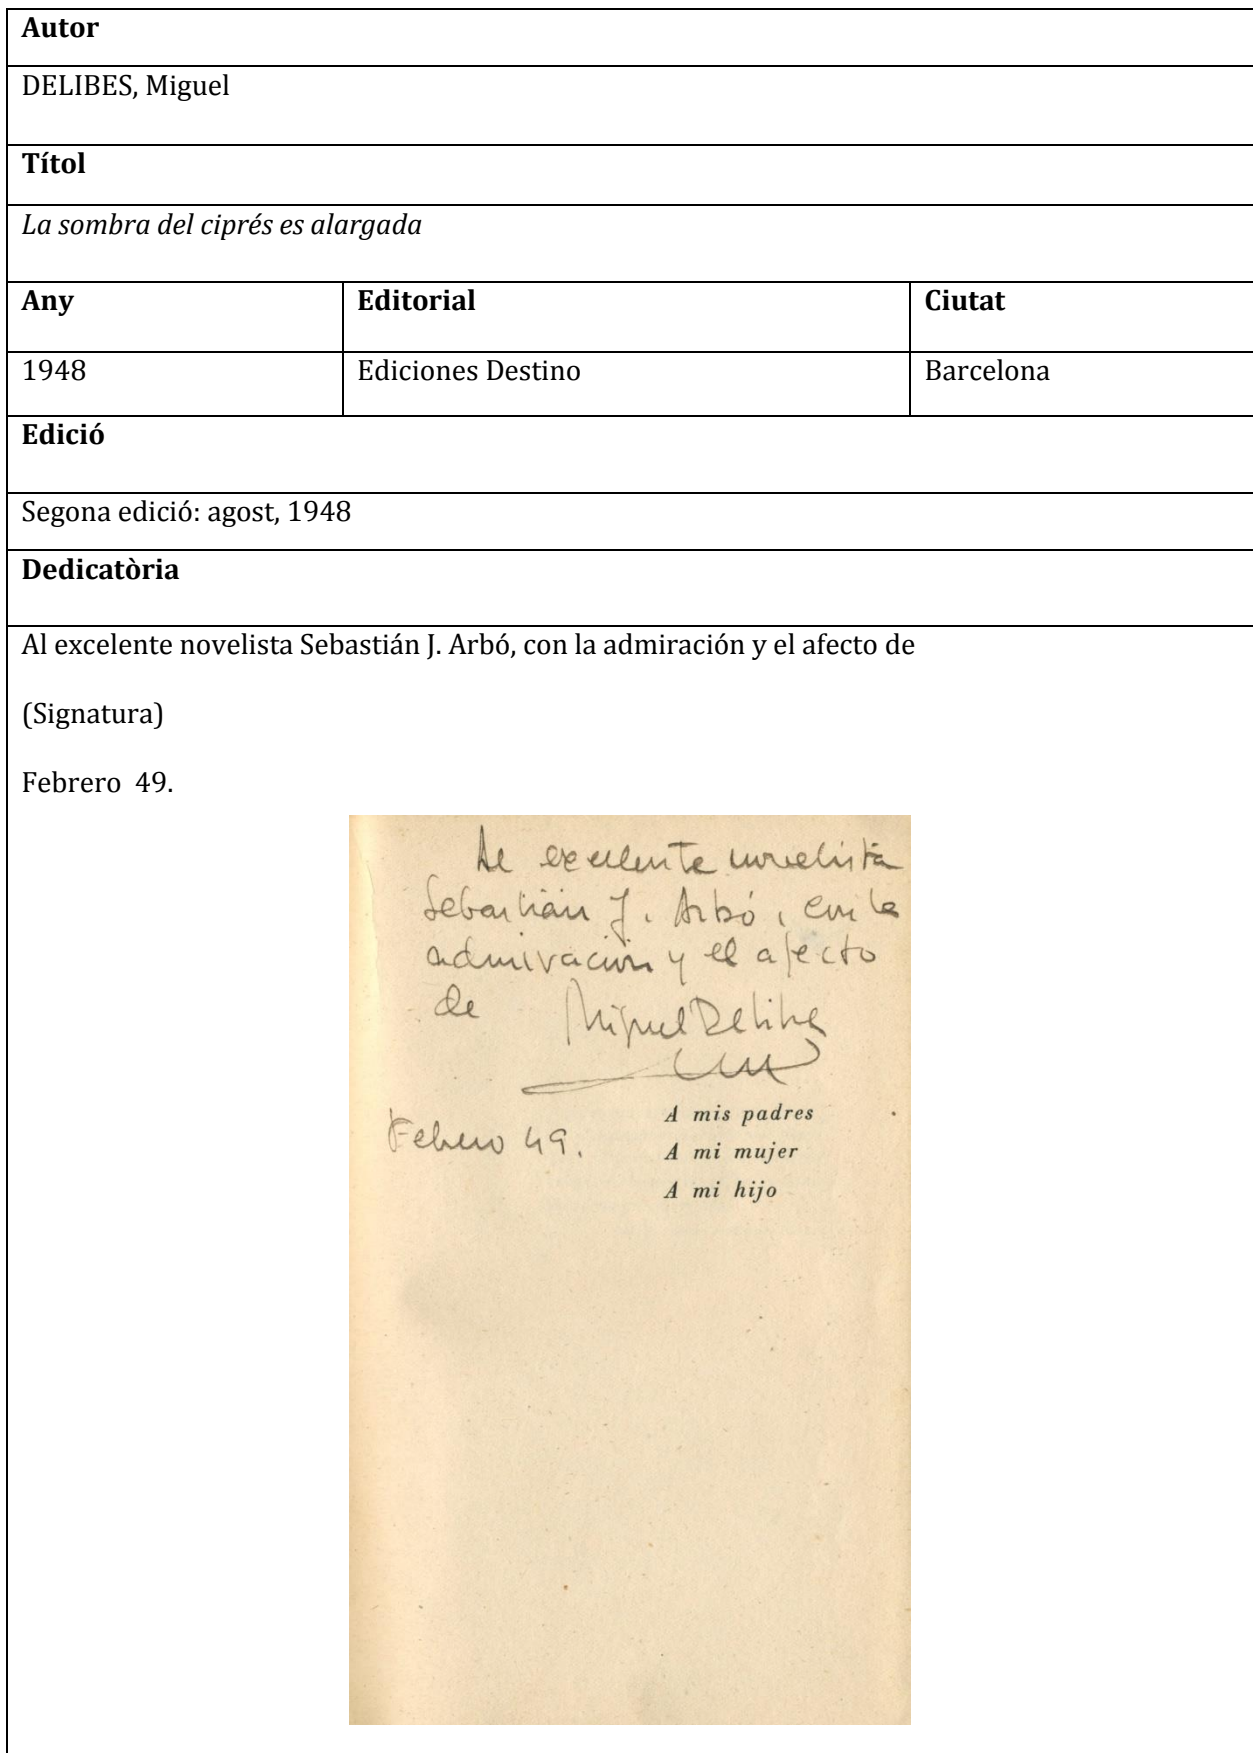 Autor
DELIBES, Miguel
Títol
La sombra del ciprés es alargada
Any Editorial Ciutat
1948 Ediciones Destino Barcelona
Edició
Segona edició: agost, 1948
Dedicatòria
Al excelente novelista Sebastián J. Arbó, con la admiración y el afecto de
(Signatura)
Febrero 49.
Al excelente novelista
Sebastián J. Arbó, con la
admiración y el afecto
de Miguel Delibes
Febrero 49.
A mis padres
A mi mujer
A mi hijo